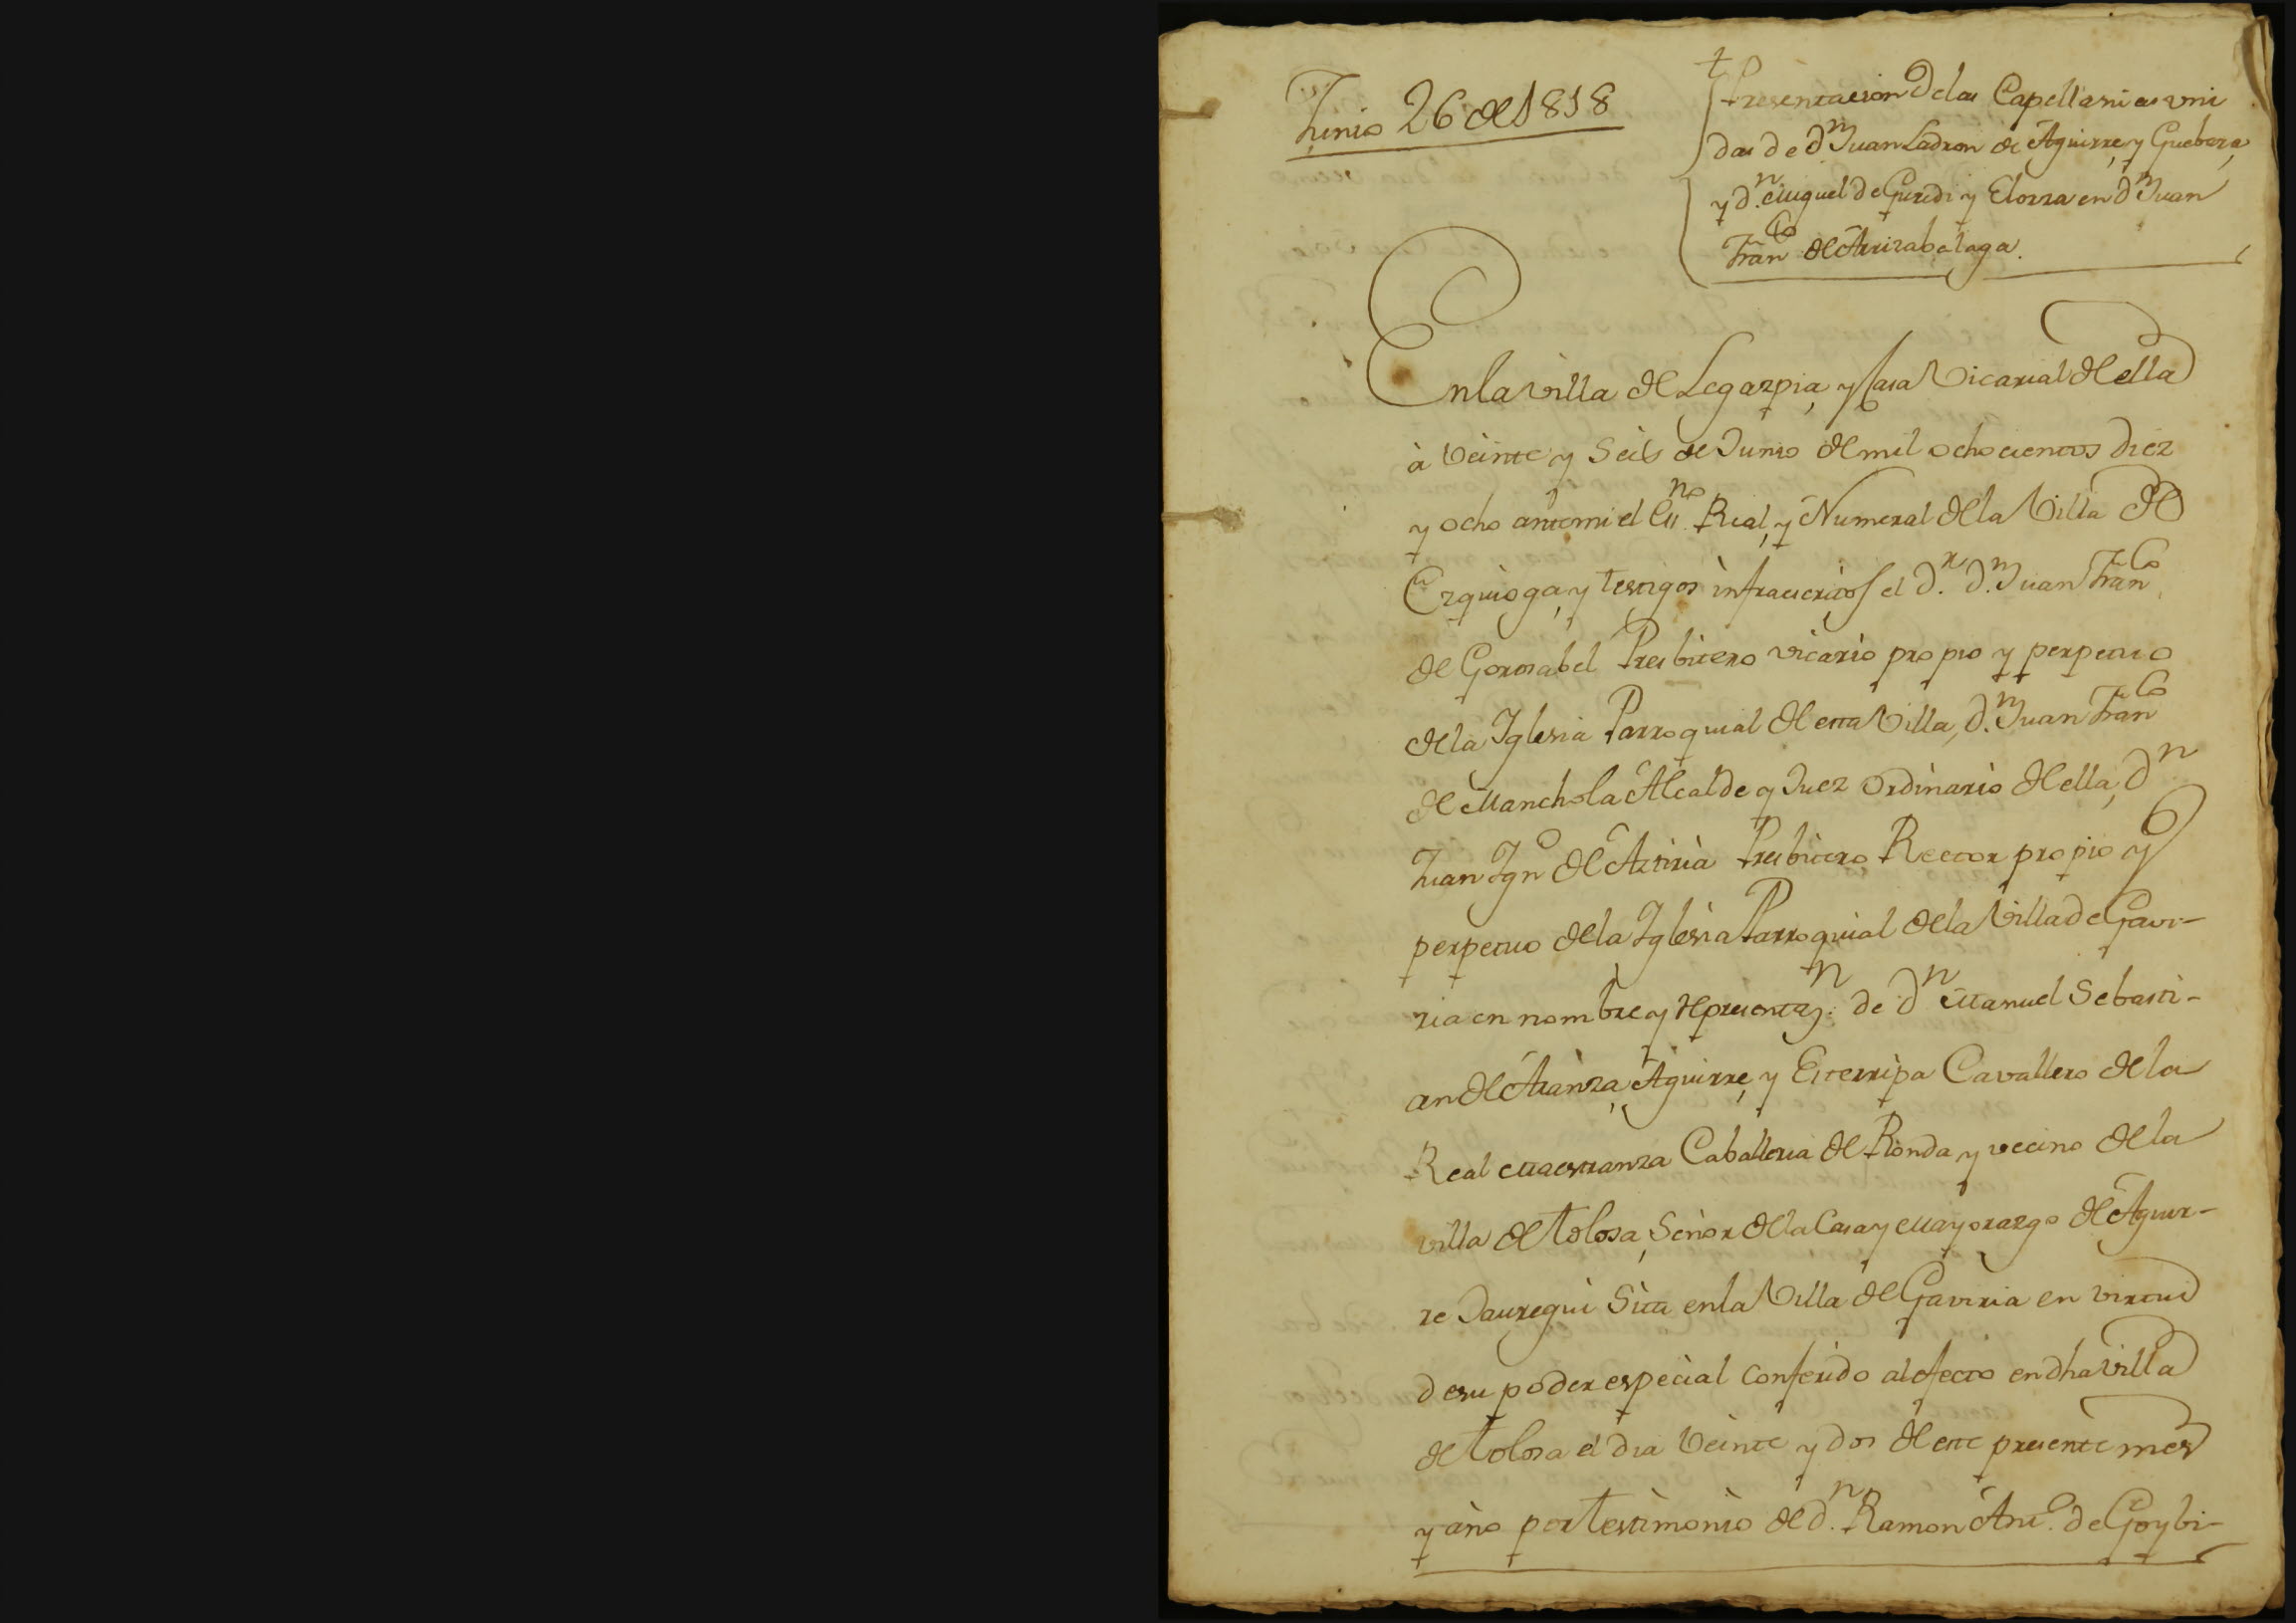 Junio 26 de 1818
Presentacion de las Capellanias vni
das de Dn Juan Ladron de Aguirre, y Guebara,
y Dn. Miguel de Guridi y Elorza en Dn Juan
Franco de Arrizabalaga.
En la villa de Legazpia, y Casa Vicarial de ella
à Veinte y Seis de Junio de mil ochocientos diez
y ocho ante mi el Essno. Real, y Numeral de la Villa de
Ezquioga, y testigos infraescritos el Dr. Dn. Juan Franco
de Gorosabel Presbitero vicario propio y perpetuo
de la Iglesia Parroquial de esta Villa, Dn. Juan Franco
de Manchola Alcalde y Juez ordinario de ella, Dn
Juan Igno de Astiria Presbitero Rector propio y
perpetuo de la Iglesia Parroquial de la Villa de Gavi-
ria en nombre y representazn. de Dn Manuel Sebasti-
an de Aranza, Aguirre, y Esterripa Cavallero de la
Real Maestranza Caballeria de Ronda y vecino de la
villa de Tolosa, Señor de la Casa y Mayorazgo de Aguir-
re Jauregui Sita en la Villa de Gaviria en virtud
de su poder especial conferido al efecto en dha villa
de Tolosa el dia Veinte y dos de este presente mes
y año por Testimonio de Dn. Ramon Anto. de Goybi-